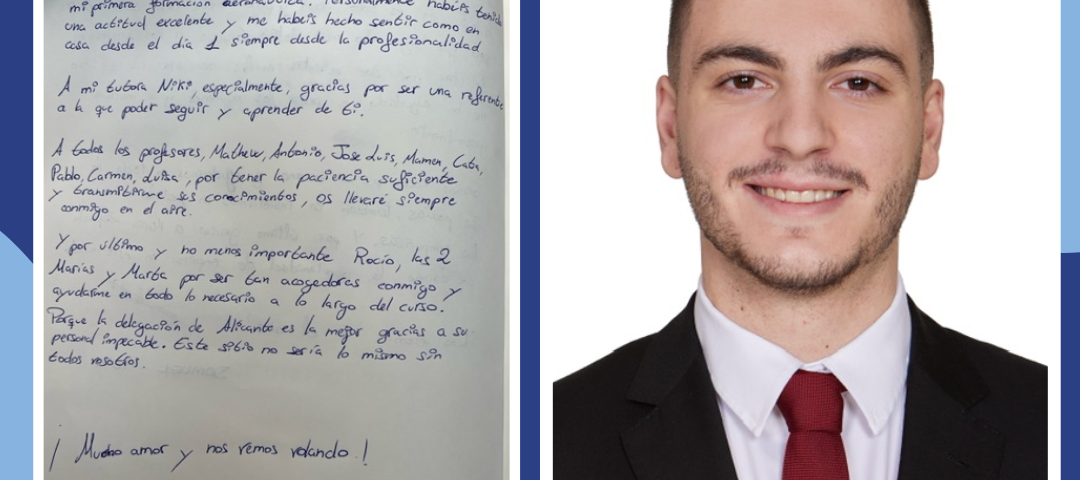 mi primera formación aeronáutica. Personalmente habéis tenido
una actitud excelente y me habéis hecho sentir como en
casa desde el día 1 siempre desde la profesionalidad.
A mi tutora Niki, especialmente, gracias por ser una referente
a la que poder seguir y aprender de ti.
A todos los profesores, Mathew, Antonio, Jose Luis, Mamen, Cata,
Pablo, Carmen, Luisa, por tener la paciencia suficiente
y transmitirme sus conocimientos, os llevaré siempre
conmigo en el aire.
Y por último y no menos importante Rocío, las 2
Marías y Marta por ser tan acogedoras conmigo y
ayudarme en todo lo necesario a lo largo del curso.
Porque la delegación de Alicante es la mejor gracias a su
personal impecable. Este sitio no sería lo mismo sin
todos vosotros.
¡Mucho amor y nos vemos volando!